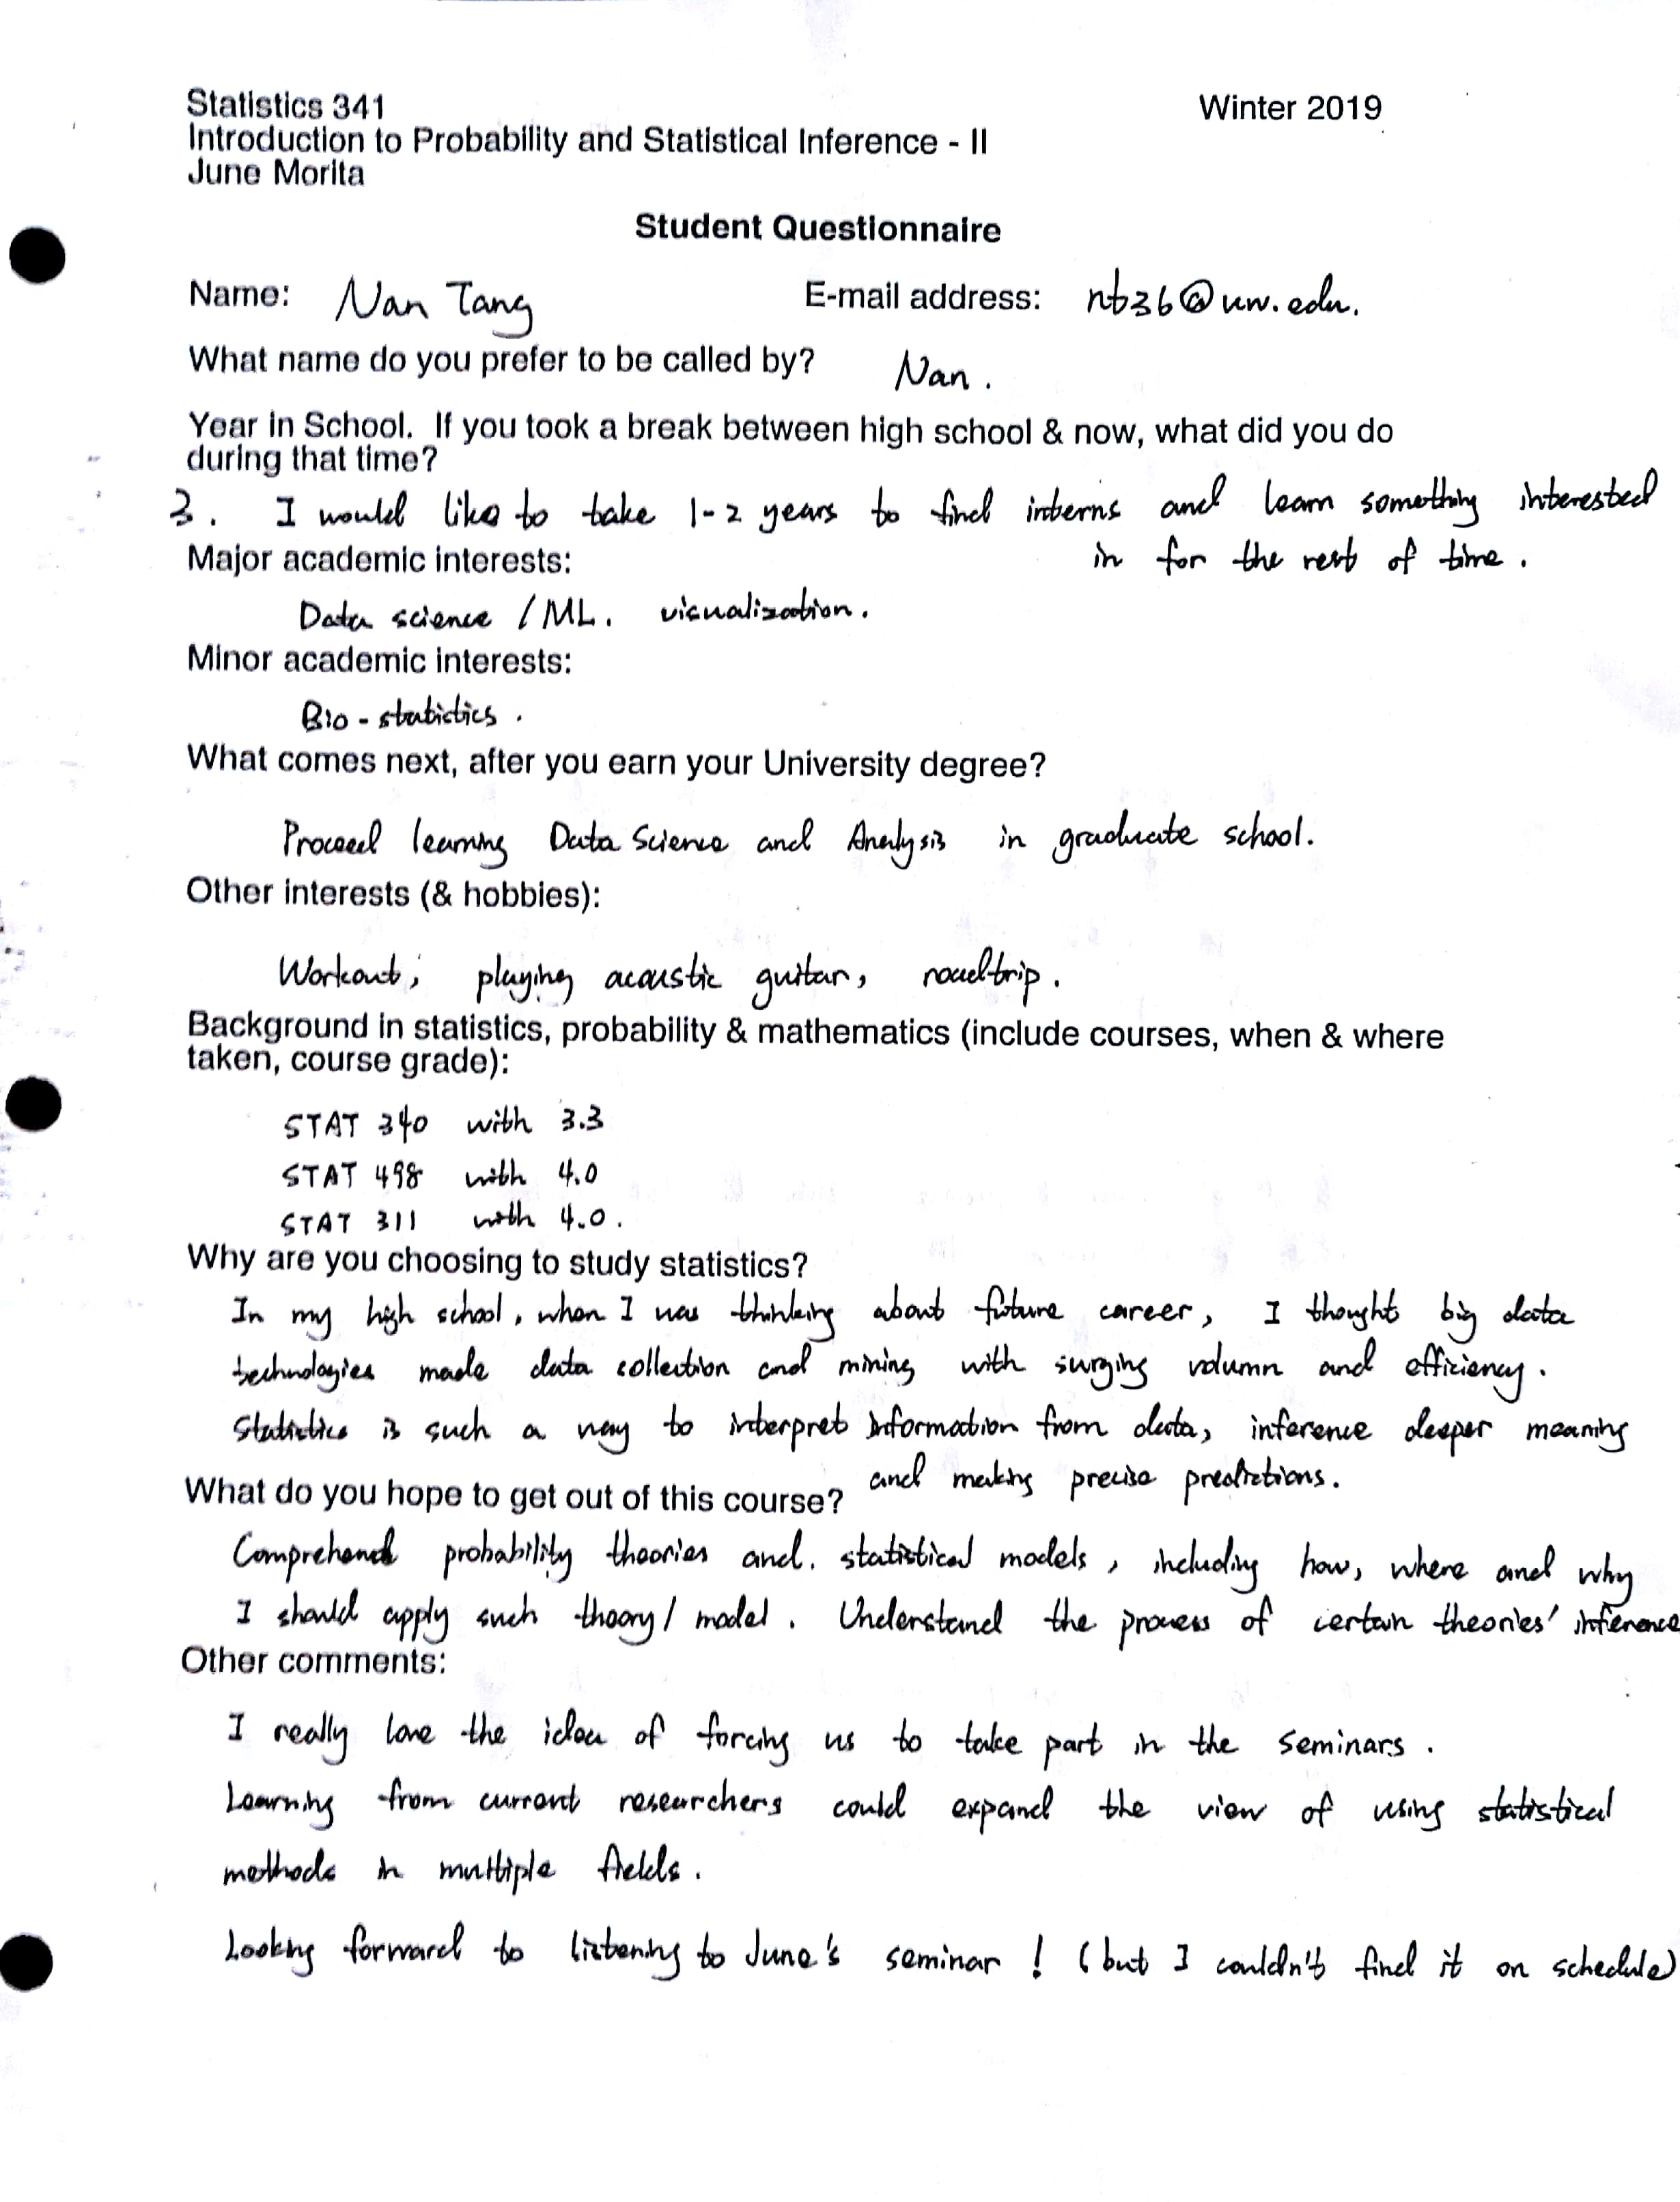 Statistics 341 Winter 2019
Introduction to Probability and Statistical Inference - II
June Morita
Student Questionnaire
Name: Nan Tang E-mail address: nt36@uw.edu.
What name do you prefer to be called by? Nan.
Year in School. If you took a break between high school & now, what did you do
during that time?
3. I would like to take 1-2 years to find interns and learn something interested
in for the rest of time.
Major academic interests:
Data science / ML. visualization.
Minor academic interests:
Bio-statistics.
What comes next, after you earn your University degree?
Proceed learning Data Science and Analysis in graduate school.
Other interests (& hobbies):
Workout, playing acoustic guitar, roadtrip.
Background in statistics, probability & mathematics (include courses, when & where
taken, course grade):
STAT 340 with 3.3
STAT 498 with 4.0
STAT 311 with 4.0.
Why are you choosing to study statistics?
In my high school, when I was thinking about future career, I thought big data
technologies made data collection and mining with surging volumn and efficiency.
Statistics is such a way to interpret information from data, inference deeper meaning
and making precise predictions.
What do you hope to get out of this course?
Comprehend probability theories and. statistical models, including how, where and why
I should apply such theory/model. Understand the process of certain theories' inference
Other comments:
I really love the idea of forcing us to take part in the seminars.
Learning from current researchers could expand the view of using statistical
methods in multiple fields.
Looking forward to listening to June's seminar! (but I couldn't find it on schedule)